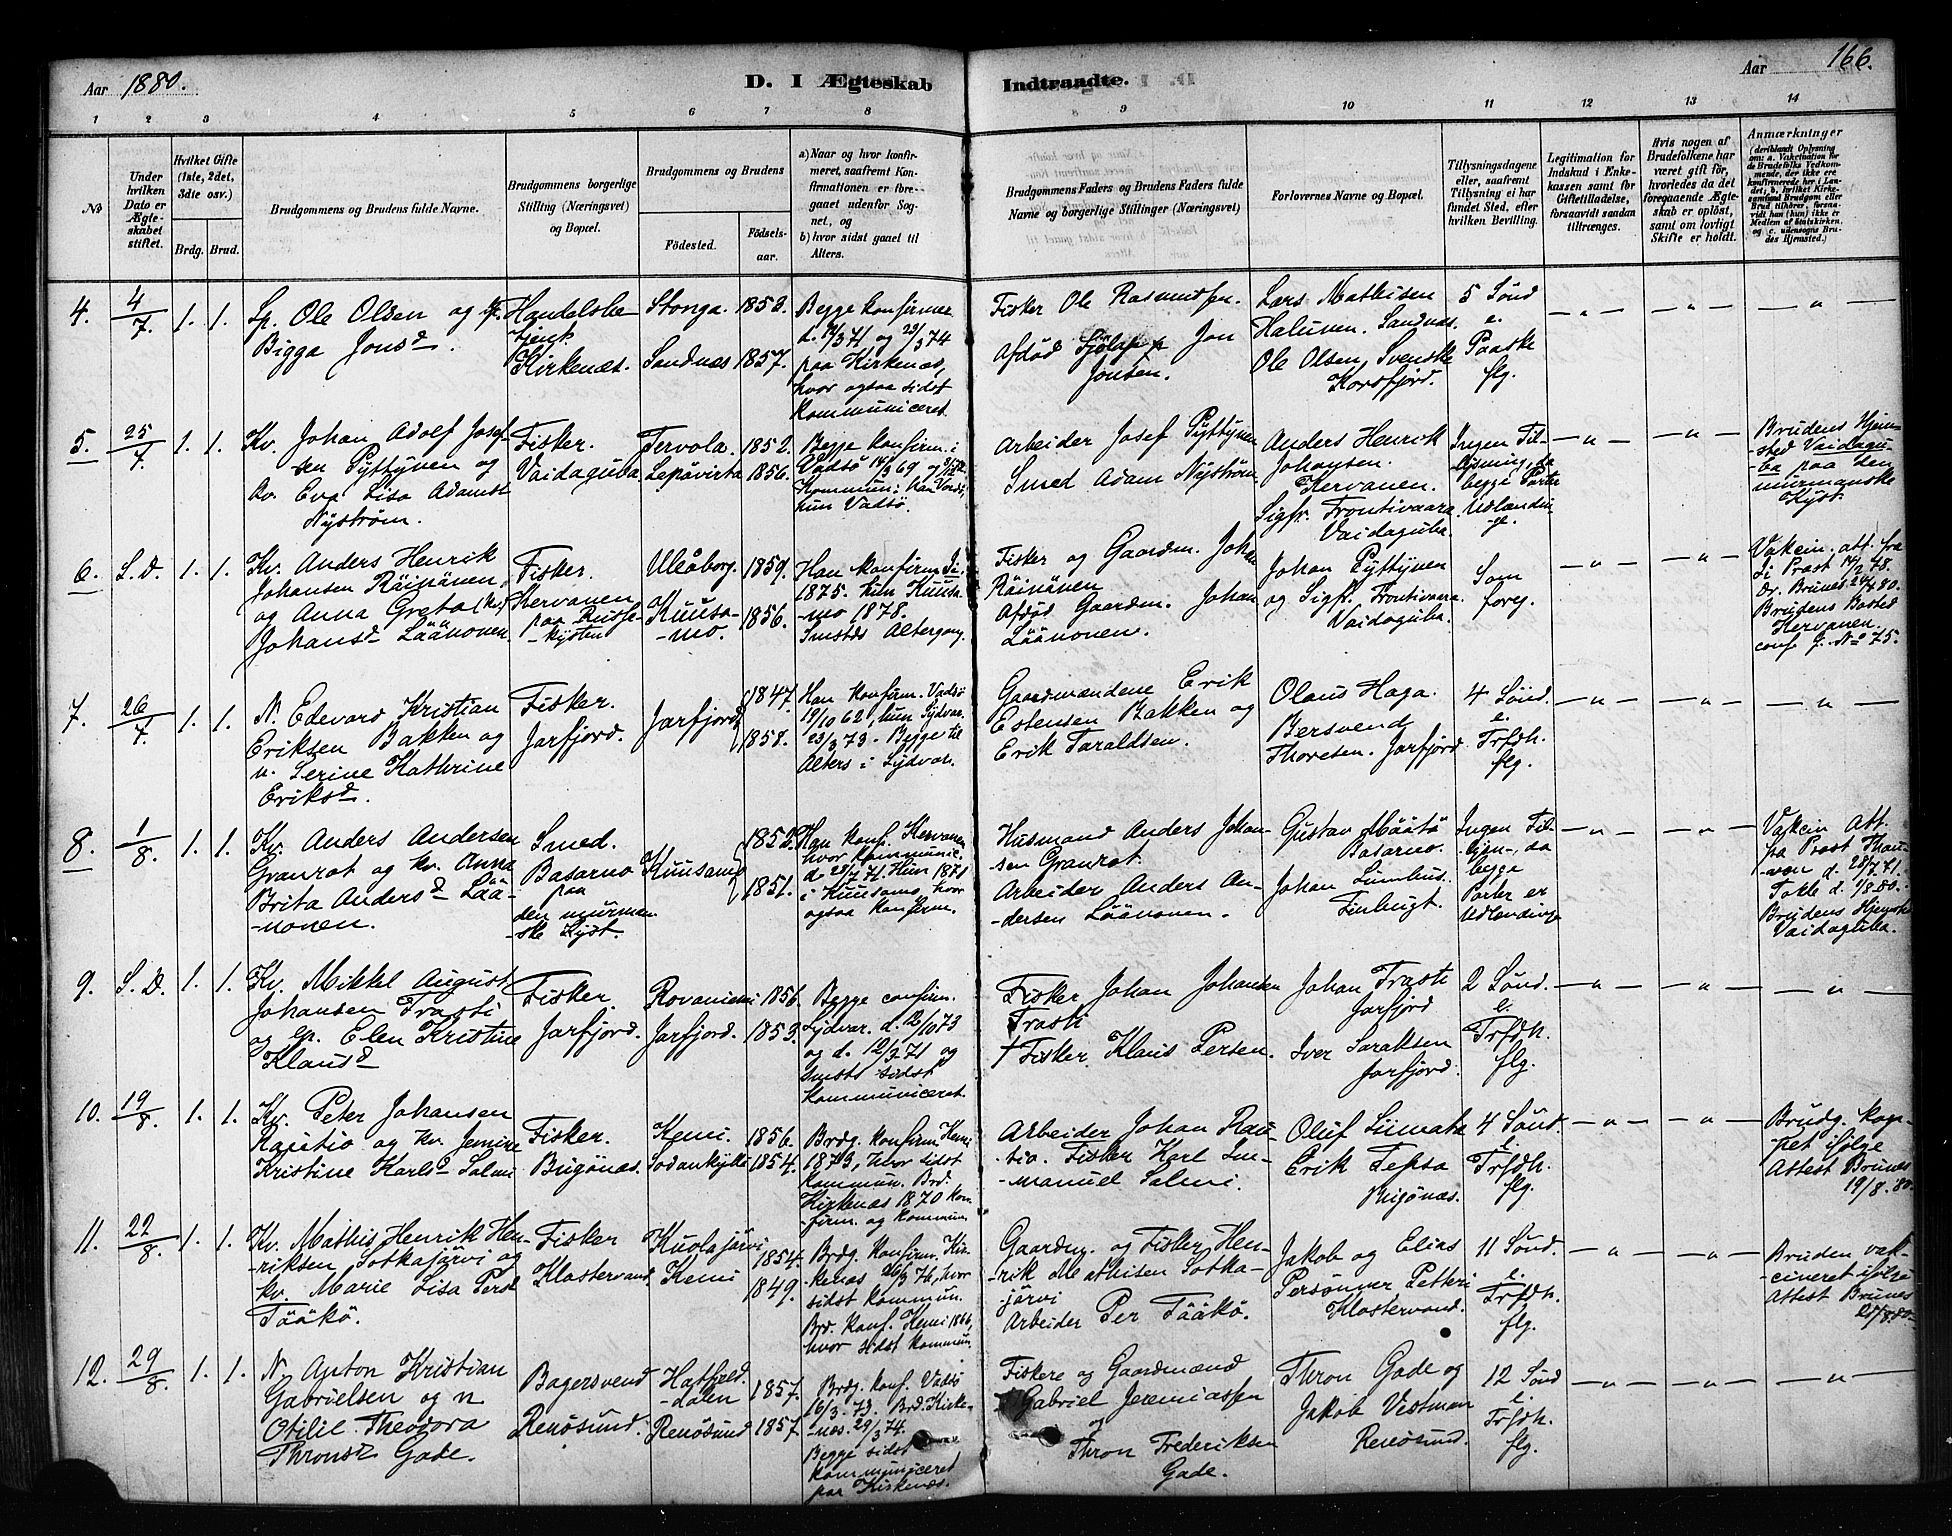 Aar 1880.
D. I Ægteskab
Indtraadte.
Aar 166.
1 2 3 4 5 6 7 8 9 10 11 12 13 14
No
Under hvilken Dato er Ægteskabet stiftet.
Hvilket Gifte (1ste, 2det, 3die osv.)
Brdg. Brud.
Brudgommens og Brudens fulde Navne.
Brudgommens borgerlige Stilling (Næringsvei) og Bopæl.
Brudgommens og Brudens
Fødested.
Fødselsaar.
a) Naar og hvor konfirmeret, saafremt Konfirmationen er foregaaet udenfor Sognet, og
b) hvor sidst gaaet til Alters.
Brudgommens Faders og Brudens Faders fulde Navne og borgerlige Stillinger (Næringsvei)
Forlovernes Navne og Bopæl.
Tillysningsdagene eller, saafremt Tillysning ei har fundet Sted, efter hvilken Bevilling.
Legitimation for Indskud i Enkekassen samt for Giftetilladelse, forsaavidt saadan tiltrænges.
Hvis nogen af Brudefolkene har været gift før, hvorledes da det foregaaende Ægteskab er opløst, samt om lovligt Skifte er holdt.
Anmærkninger
4. 4/7 1. 1.
Sp. Ole Olsen og
Bigga Jonsd.
Handelsbetjent
Kirkenæs.
Stonga. 1853.
Sandnæs 1857.
Begge konfirmer.
paa Kirkenæs,
hvor ogsaa sidst
kommuniceret.
Fisker Ole Rasmussen.
Afdød Jon
Jonsen.
Lars Mathisen
Halunen. Sandnæs.
Ole Olsen, Svenske
Korsfjord.
5 Sønd
e.
Paaske
flg.
— " — — " — — " —
5. 25/7 1. 1.
Kv. Johan Adolf Josef-
sen Pyttynen og
kv. Eva Lisa Adamsd
Nystrøm.
Fisker.
Vaidaguba
Tervola. 1852.
Lepävirta 1856.
Begge konfirm. i
Vadsø
hun Vadsø.
Arbeider Josef Pyttynen
Smed Adam Nystrøm
Anders Henrik
Johansen.
Kervanen.
Sigfr. Frontivaara
Vaidaguba.
Ingen Til-
lysning, da
begge Parter
Udlændin-
ge.
— " — — " —
Brudens Hjem-
sted Vaidagu-
ba paa den
murmanske
Kyst.
6. S.D. 1. 1.
Kv. Anders Henrik
Johansen Räinänen,
og Anna Greta (kv.)
Johansd Läänonen.
Fisker.
Kervanen
paa Russe-
kysten
Uleåborg. 1859.
Kuusa-
mo. 1856.
1875. hun Kuusa-
mo 1878.
Smsteds Altergang.
Fisker og Gaardm. Johan
Räinänen
Afdød Gaardm. Johan
Läänonen.
Johan Pyttynen
og Sigfr. Frontivaara
Vaidaguba.
Som
foreg.
— " — — " —
Brudens Bosted
Kervanen.
conf J. No 75.
7. 26/7 1. 1.
N. Edevard Kristian
Eriksen Bakken og
n. Serine Kathrine
Eriksd.
Fisker.
Jarfjord.
Jarfjord
1847.
1858.
Han konfirm. Vadsø
19/10 62, hun Sydvar.
23/3 73. Begge til
Alters i Sydvar.
Gaardmændene Erik
Estensen Bakken og
Erik Taraldsen.
Olaus Haga.
Bersvend
Thoresen. Jarfjord
4 Sønd.
e.
Trfdh.
flg.
— " — — " — — " —
8. 1/8 1. 1.
Kv. Anders Andersen
Granrot og kv. Anna
Brita Andersd Lää-
nonen.
Smed.
Basarno
paa
den murman-
ske Kyst.
Kuusamo
1852.
1851.
Han konf. Kervanen
hvor kommunic.
Hun 1871
i Kuusamo, hvor
ogsaa konfirm.
Husmand Anders Johan-
sen Granrot.
Arbeider Anders An-
dersen Läänonen.
Gustav Määtä
Basarno.
Johan
Finbugt.
Ingen Til-
lysn., da
begge
Parter er
Udlændinge
— " — — " —
Vakcin. Att.
fra Prost
Brudens Hjemst.
Vaidaguba.
9. S.D. 1. 1.
Kv. Mikkel August
Johansen Trasti
og sp. Elen Kristine
Klausd
Fisker.
Jarfjord.
Rovaniemi 1856.
Jarfjord. 1853.
Begge confirm.
Sydvar. d. 12/10 73
og d. 12/3 71 og
smsts sidst
kommuniceret.
Fisker Johan Johansen
Trasti
† Fisker Klaus Persen.
Johan Trasti
Jarfjord
Iver Saraksen
Jarfjord.
2 Sønd.
e.
Trfdh.
flg.
— " — — " — — " —
10. 19/8 1. 1.
Kv. Peter Johansen
Rautio og kv. Jemine
Kristine Karlsd Salmi
Fisker.
Bugønæs.
Kemi. 1856.
Sodankylä 1854.
Brdg. konfirm. Kemi
1873, hvor sidst
kommun. Brd.
Kirkenæs 1870 kon-
firm. og kommun.
Arbeider Johan Rau-
tio. Fisker Karl Im-
manuel Salmi.
Oluf Siimata
Erik Tepsa
Bugønæs.
4 Sønd.
e.
Trfdh.
flg.
— " — — " —
Brudg. kop-
pet ifølge
Attest Brunes
19/8. 80.
11. 22/8 1. 1.
Kv. Mathis Henrik Hen-
riksen Sotkajärvi og
kv. Marie Lisa Persd
Tääkö.
Fisker
Klostervand.
Kuolajärvi 1854.
Kemi 1849.
Brdg. konfirm. Kir-
kenæs 26/3 76, hvor
sidst kommun.
Brd. konf. Kemi 1866,
hvor sidst kommun.
Gaardm. og Fisker Hen-
rik Mathisen Sotka-
järvi
Arbeider Per Tääkö.
Jakob og Elias
Persønner Petteri
Klostervand.
11 Sønd.
e.
Trfdh.
flg.
— " — — " —
Bruden vak-
cineret ifølge
Attest Brunes
12. 29/8 1. 1.
N. Anton Kristian
Gabrielsen og n
Otilie Theodora
Thronsd Gade.
Bagersvend
Renøsund.
Hatfjeld-
dalen 1857.
Renøsund 1857.
Brdg. konf. Vadsø
16/3 73. Brd. Kirke-
næs. 29/3 74.
Begge sidst
kommuniceret
paa Kirkenæs.
Fiskere og Gaardmænd
Gabriel Jeremiassen
og
Thron Frederiksen
Gade.
Thron Gade og
Jakob Vestman
Renøsund.
12 Sønd
e.
Trfdh.
flg.
— " — — " — — " —